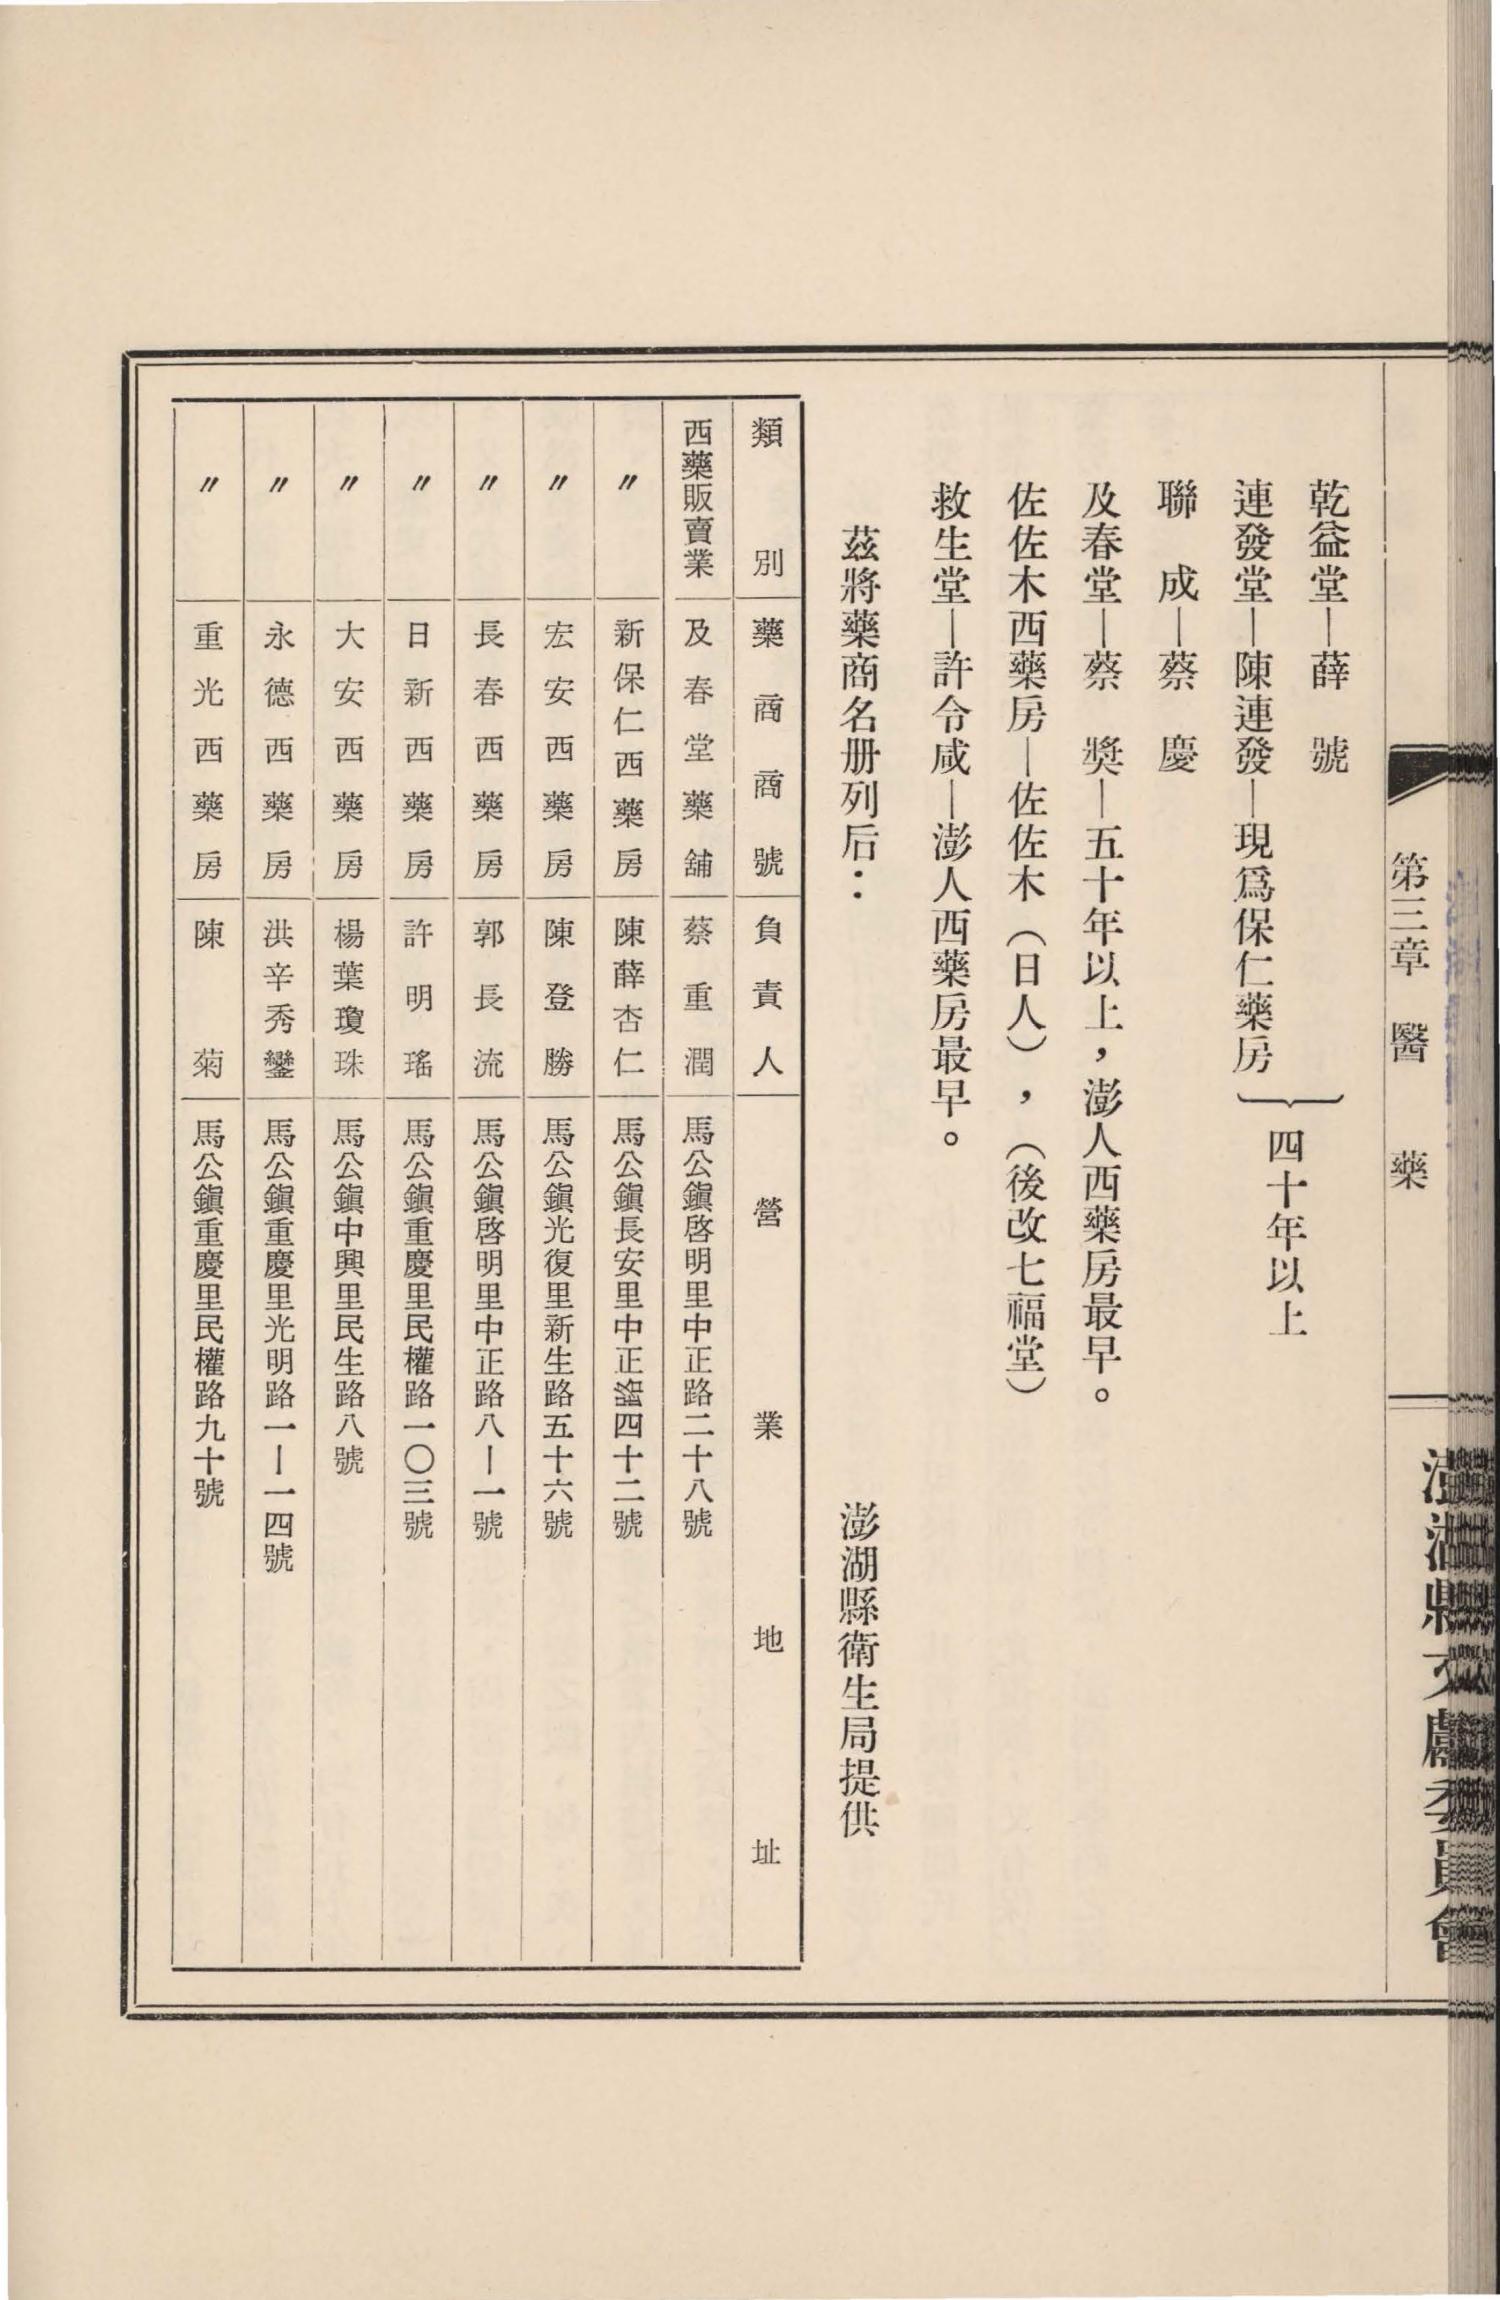 第三章　醫　藥
澎湖縣文獻委員會
乾益堂—薛　號
連發堂—陳連發—現爲保仁藥房
四十年以上
聯　成—蔡　慶
及春堂—蔡　奬—五十年以上，澎人西藥房最早。
佐佐木西藥房—佐佐木（日人），（後改七福堂）
救生堂—許令咸—澎人西藥房最早。
茲將藥商名册列后：　澎湖縣衛生局提供
類別　藥商商號　負責人　營業地址
西藥販賣業　及春堂藥舖　蔡重潤　馬公鎭啓明里中正路二十八號
〃　新保仁西藥房　陳薛杏仁　馬公鎭長安里中正路四十二號
〃　宏安西藥房　陳登勝　馬公鎭光復里新生路五十六號
〃　長春西藥房　郭長流　馬公鎭啓明里中正路八—一號
〃　日新西藥房　許明瑤　馬公鎭重慶里民權路一〇三號
〃　大安西藥房　楊葉瓊珠　馬公鎭中興里民生路八號
〃　永德西藥房　洪辛秀鑾　馬公鎭重慶里光明路一—一四號
〃　重光西藥房　陳菊　馬公鎭重慶里民權路九十號